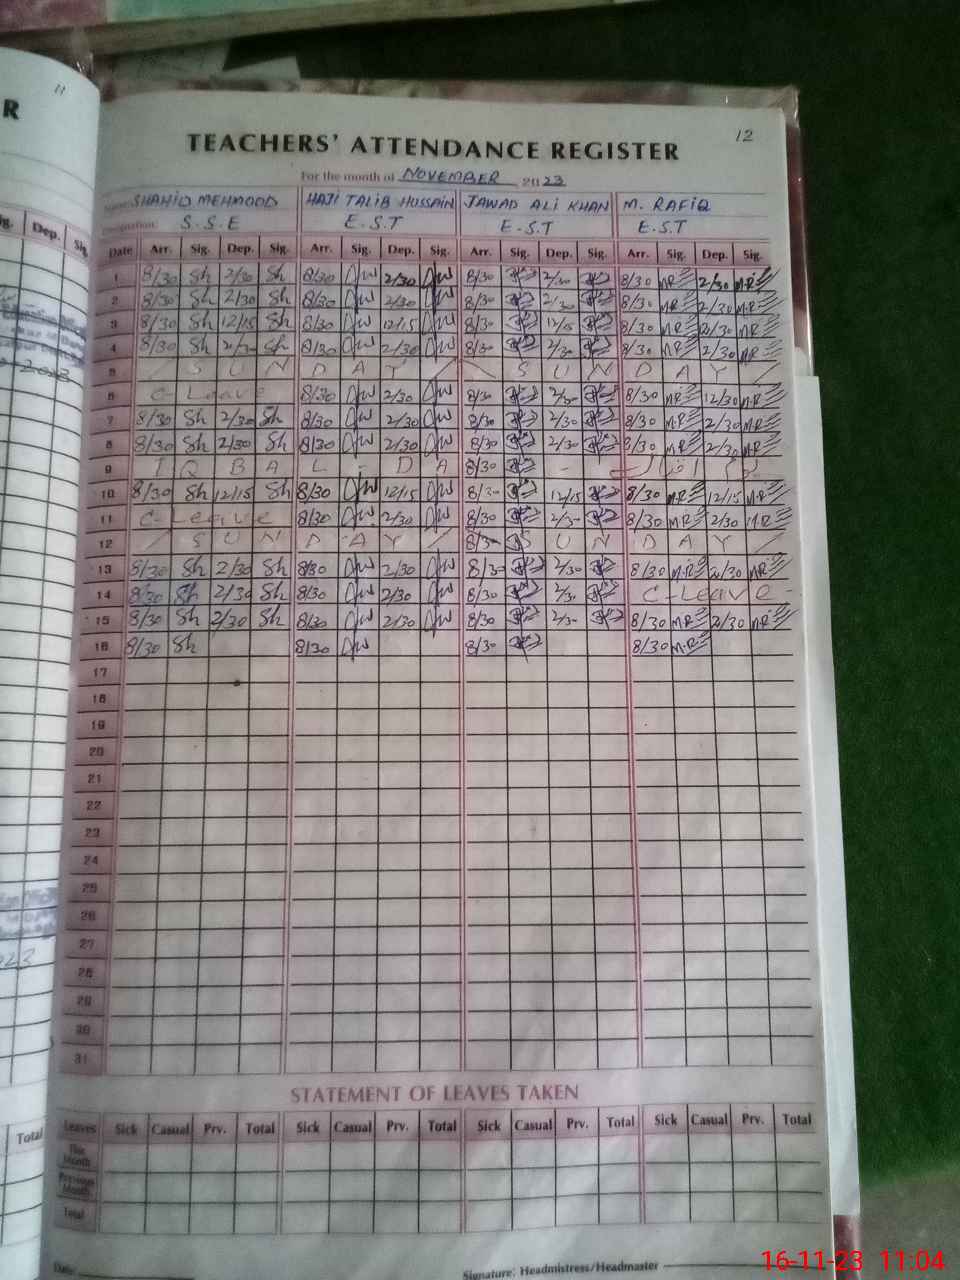 11
R
12
TEACHERS' ATTENDANCE REGISTER
For the month of NOVEMBER 2023
Name SHAHID MEHMOOD HAJI TALIB HUSSAIN JAWAD ALI KHAN M. RAFIQ
Designation S.S.E E.S.T E.S.T E.S.T
Dep.
Date Arr. Sig. Dep. Sig. Arr. Sig. Dep. Sig. Arr. Sig. Dep. Sig. Arr. Sig. Dep. Sig.
1 8/30 Sh 2/30 Sh 8/30 2/30 8/30 2/30 8/30 M.R 2/30 M.R
2 8/30 Sh 2/30 Sh 8/30 2/30 8/30 2/30 8/30 M.R 2/30 M.R
3 8/30 Sh 12/15 Sh 8/30 12/15 8/30 12/15 8/30 M.R 2/30 M.R
4 8/30 Sh 2/30 Sh 8/30 2/30 8/30 2/30 8/30 M.R 2/30 M.R
5 / S U N D A Y / / S U N D A Y /
6 C-Leave 8/30 2/30 8/30 2/30 8/30 M.R 12/30 M.R
7 8/30 Sh 2/30 Sh 8/30 2/30 8/30 2/30 8/30 M.R 2/30 M.R
8 8/30 Sh 2/30 Sh 8/30 2/30 8/30 2/30 8/30 M.R 2/30 M.R
9 I Q B A L - D A 8/30 - اقبال
10 8/30 Sh 12/15 Sh 8/30 12/15 8/30 12/15 8/30 M.R 12/15 M.R
11 C-Leave 8/30 2/30 8/30 2/30 8/30 M.R 2/30 M.R
12 / S U N D A Y / 8/30 S U N D A Y /
13 8/30 Sh 2/30 Sh 8/30 2/30 8/30 2/30 8/30 M.R 2/30 M.R
14 8/30 Sh 2/30 Sh 8/30 2/30 8/30 2/30 C-Leave -
15 8/30 Sh 2/30 Sh 8/30 2/30 8/30 2/30 8/30 M.R 2/30 M.R
16 8/30 Sh 8/30 8/30 8/30 M.R
17
18
19
20
21
22
23
24
25
26
27
28
29
30
31
STATEMENT OF LEAVES TAKEN
Leaves Sick Casual Prv. Total Sick Casual Prv. Total Sick Casual Prv. Total Sick Casual Prv. Total
Total
This Month
Previous Month
Total
Date:
Signature: Headmistress/Headmaster
16-11-23 11:04